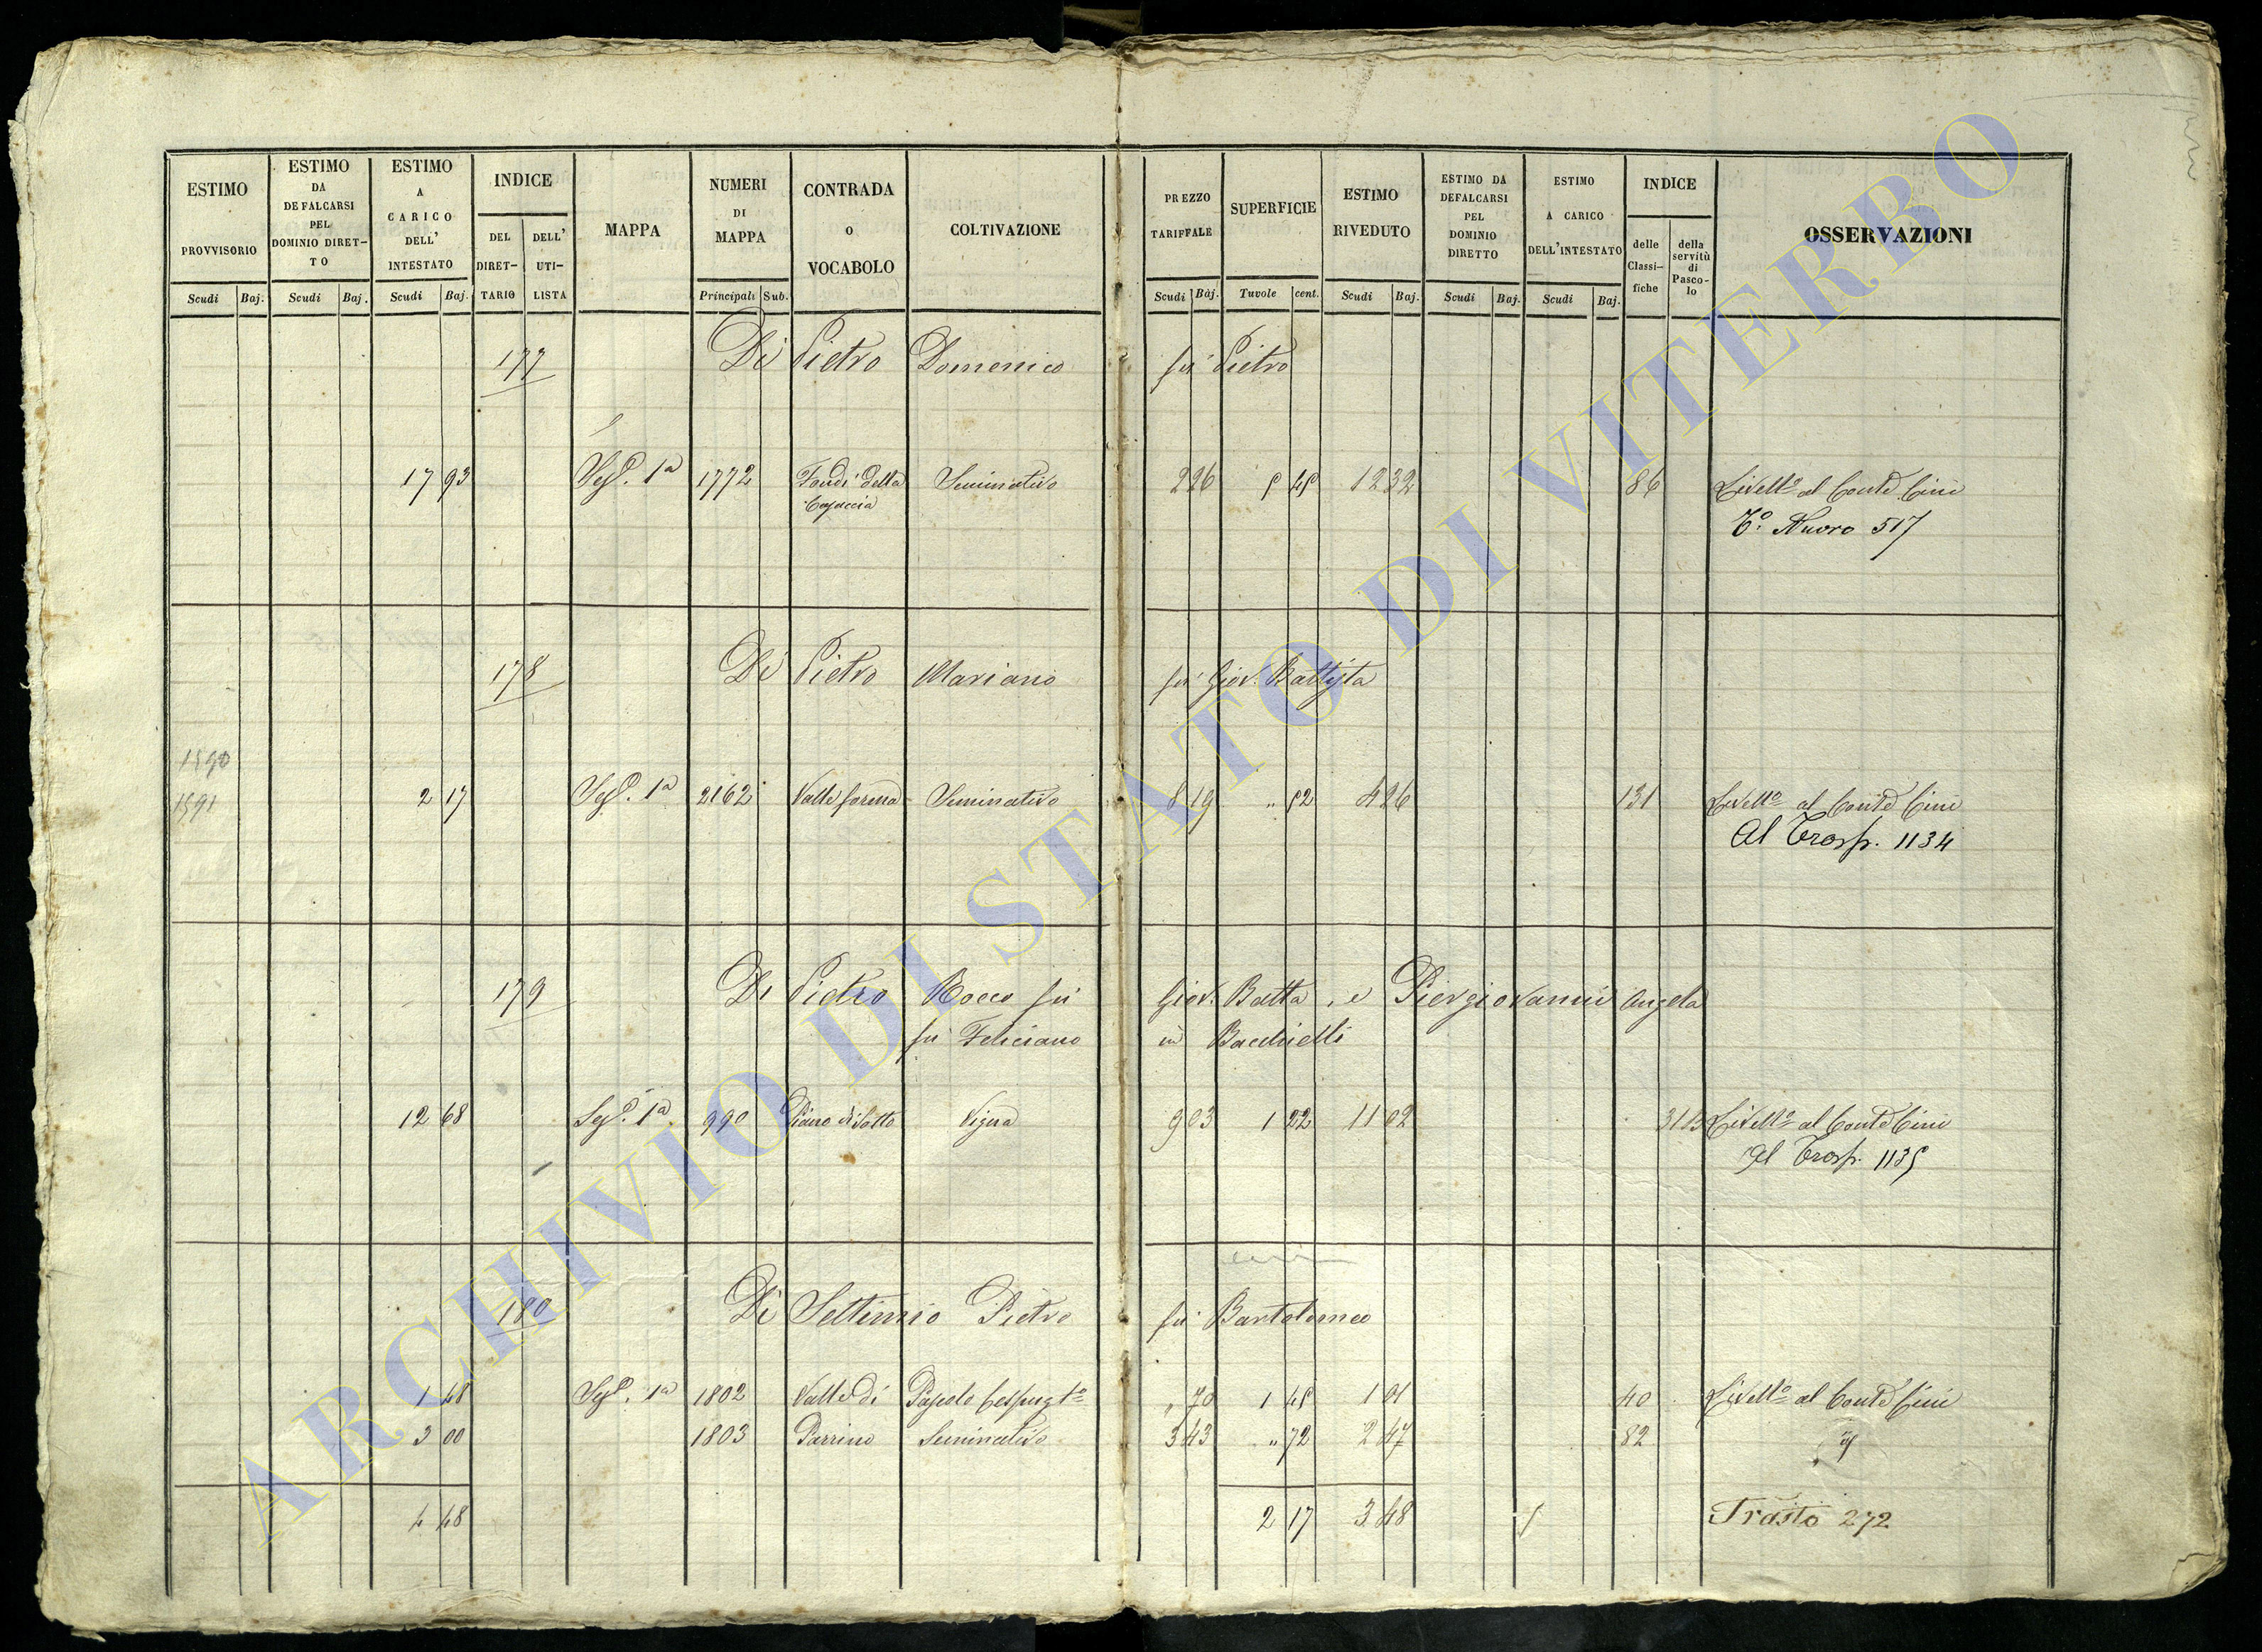 ESTIMO PROVVISORIO Scudi Baj.
ESTIMO DA DEFALCARSI PEL DOMINIO DIRETTO Scudi Baj.
ESTIMO A CARICO DELL' INTESTATO Scudi Baj.
INDICE DEL DIRETTARIO DELL' UTILISTA
MAPPA
NUMERI DI MAPPA Principali Sub.
CONTRADA O VOCABOLO
COLTIVAZIONE
PREZZO TARIFFALE Scudi Baj.
SUPERFICIE Tavole cent.
ESTIMO RIVEDUTO Scudi Baj.
ESTIMO DA DEFALCARSI PEL DOMINIO DIRETTO Scudi Baj.
ESTIMO A CARICO DELL'INTESTATO Scudi Baj.
INDICE delle Classifiche della servitù di Pascolo
OSSERVAZIONI
177 Di Pietro Domenico fu Pietro
17 93 Sez. 1a 1772 Fondi della Seminativo 2 26 5 45 12 32 86 Livello al Conte Cini
To. Nuovo 517
178 Di Pietro Mariano fu Giov. Battista
1590
1591 2 17 Sez. 1a 2162 Valle forma Seminativo 8 19 " 52 4 26 131 Livello al Conte Cini
Al Trasp. 1134
179 Di Pietro Rocco fu Giov. Batta, e Piergiovanni Angela
fu Feliciano in Bacchielli
12 68 Sez. 1a 990 Piano di Sotto Vigna 9 03 1 22 11 02 Livello al Conte Cini
Al Trasp. 1135
180 Di Settimio Pietro fu Bartolomeo
1 48 Sez. 1a 1802 Valle di Pascolo Cespugto " 70 1 45 1 01 40 Livello al Conte Cini
3 00 1803 Parrino Seminativo 3 43 " 72 2 47 82 id
4 48 2 17 3 48 Trasto 272
ARCHIVIO DI STATO DI VITERBO